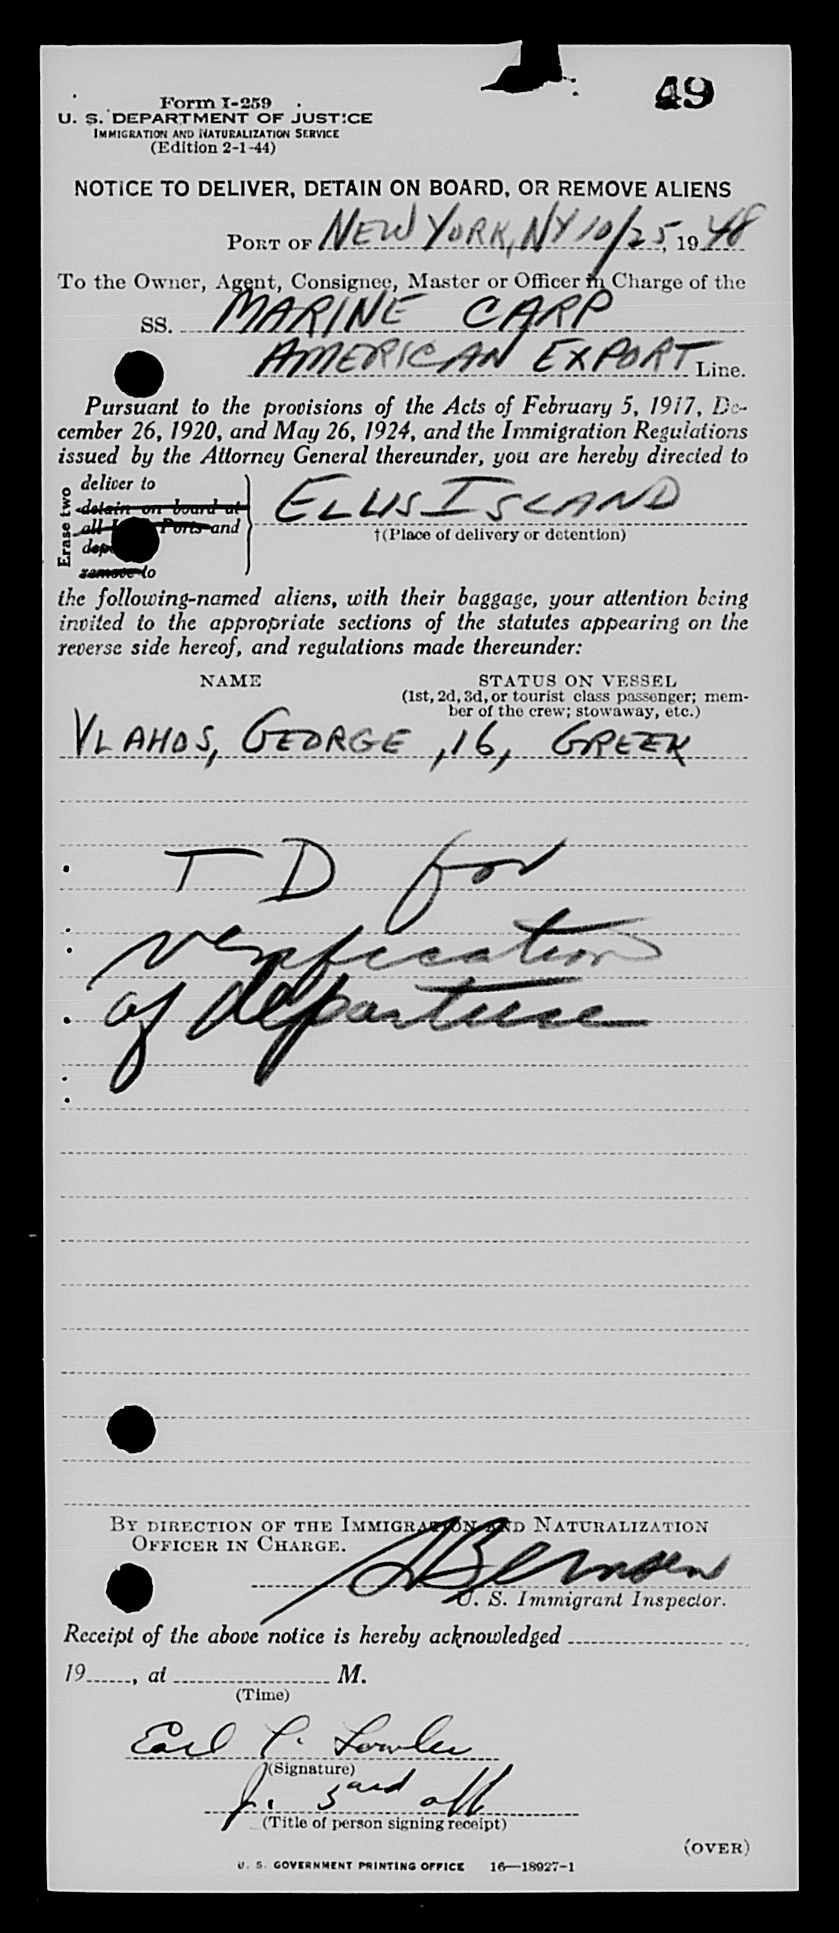 49
Form I-259
U. S. DEPARTMENT OF JUSTICE
IMMIGRATION AND NATURALIZATION SERVICE
(Edition 2-1-44)
NOTICE TO DELIVER, DETAIN ON BOARD, OR REMOVE ALIENS
PORT OF NEW YORK, NY 10/25, 1948
To the Owner, Agent, Consignee, Master or Officer in Charge of the
SS. MARINE CARP
AMERICAN EXPORT Line.
Pursuant to the provisions of the Acts of February 5, 1917, De-
cember 26, 1920, and May 26, 1924, and the Immigration Regulations
issued by the Attorney General thereunder, you are hereby directed to
Erase two
deliver to
detain on board at
all Ports and
remove to
ELLIS ISLAND
†(Place of delivery or detention)
the following-named aliens, with their baggage, your attention being
invited to the appropriate sections of the statutes appearing on the
reverse side hereof, and regulations made thereunder:
NAME STATUS ON VESSEL
(1st, 2d, 3d, or tourist class passenger; mem-
ber of the crew; stowaway, etc.)
VLAHOS, GEORGE, 16, GREEK
TD for
verification
of departure
BY DIRECTION OF THE IMMIGRATION AND NATURALIZATION
OFFICER IN CHARGE.
U. S. Immigrant Inspector.
Receipt of the above notice is hereby acknowledged
19, at M.
(Time)
Earl
(Signature)
(Title of person signing receipt)
(OVER)
U. S. GOVERNMENT PRINTING OFFICE 16—18927-1